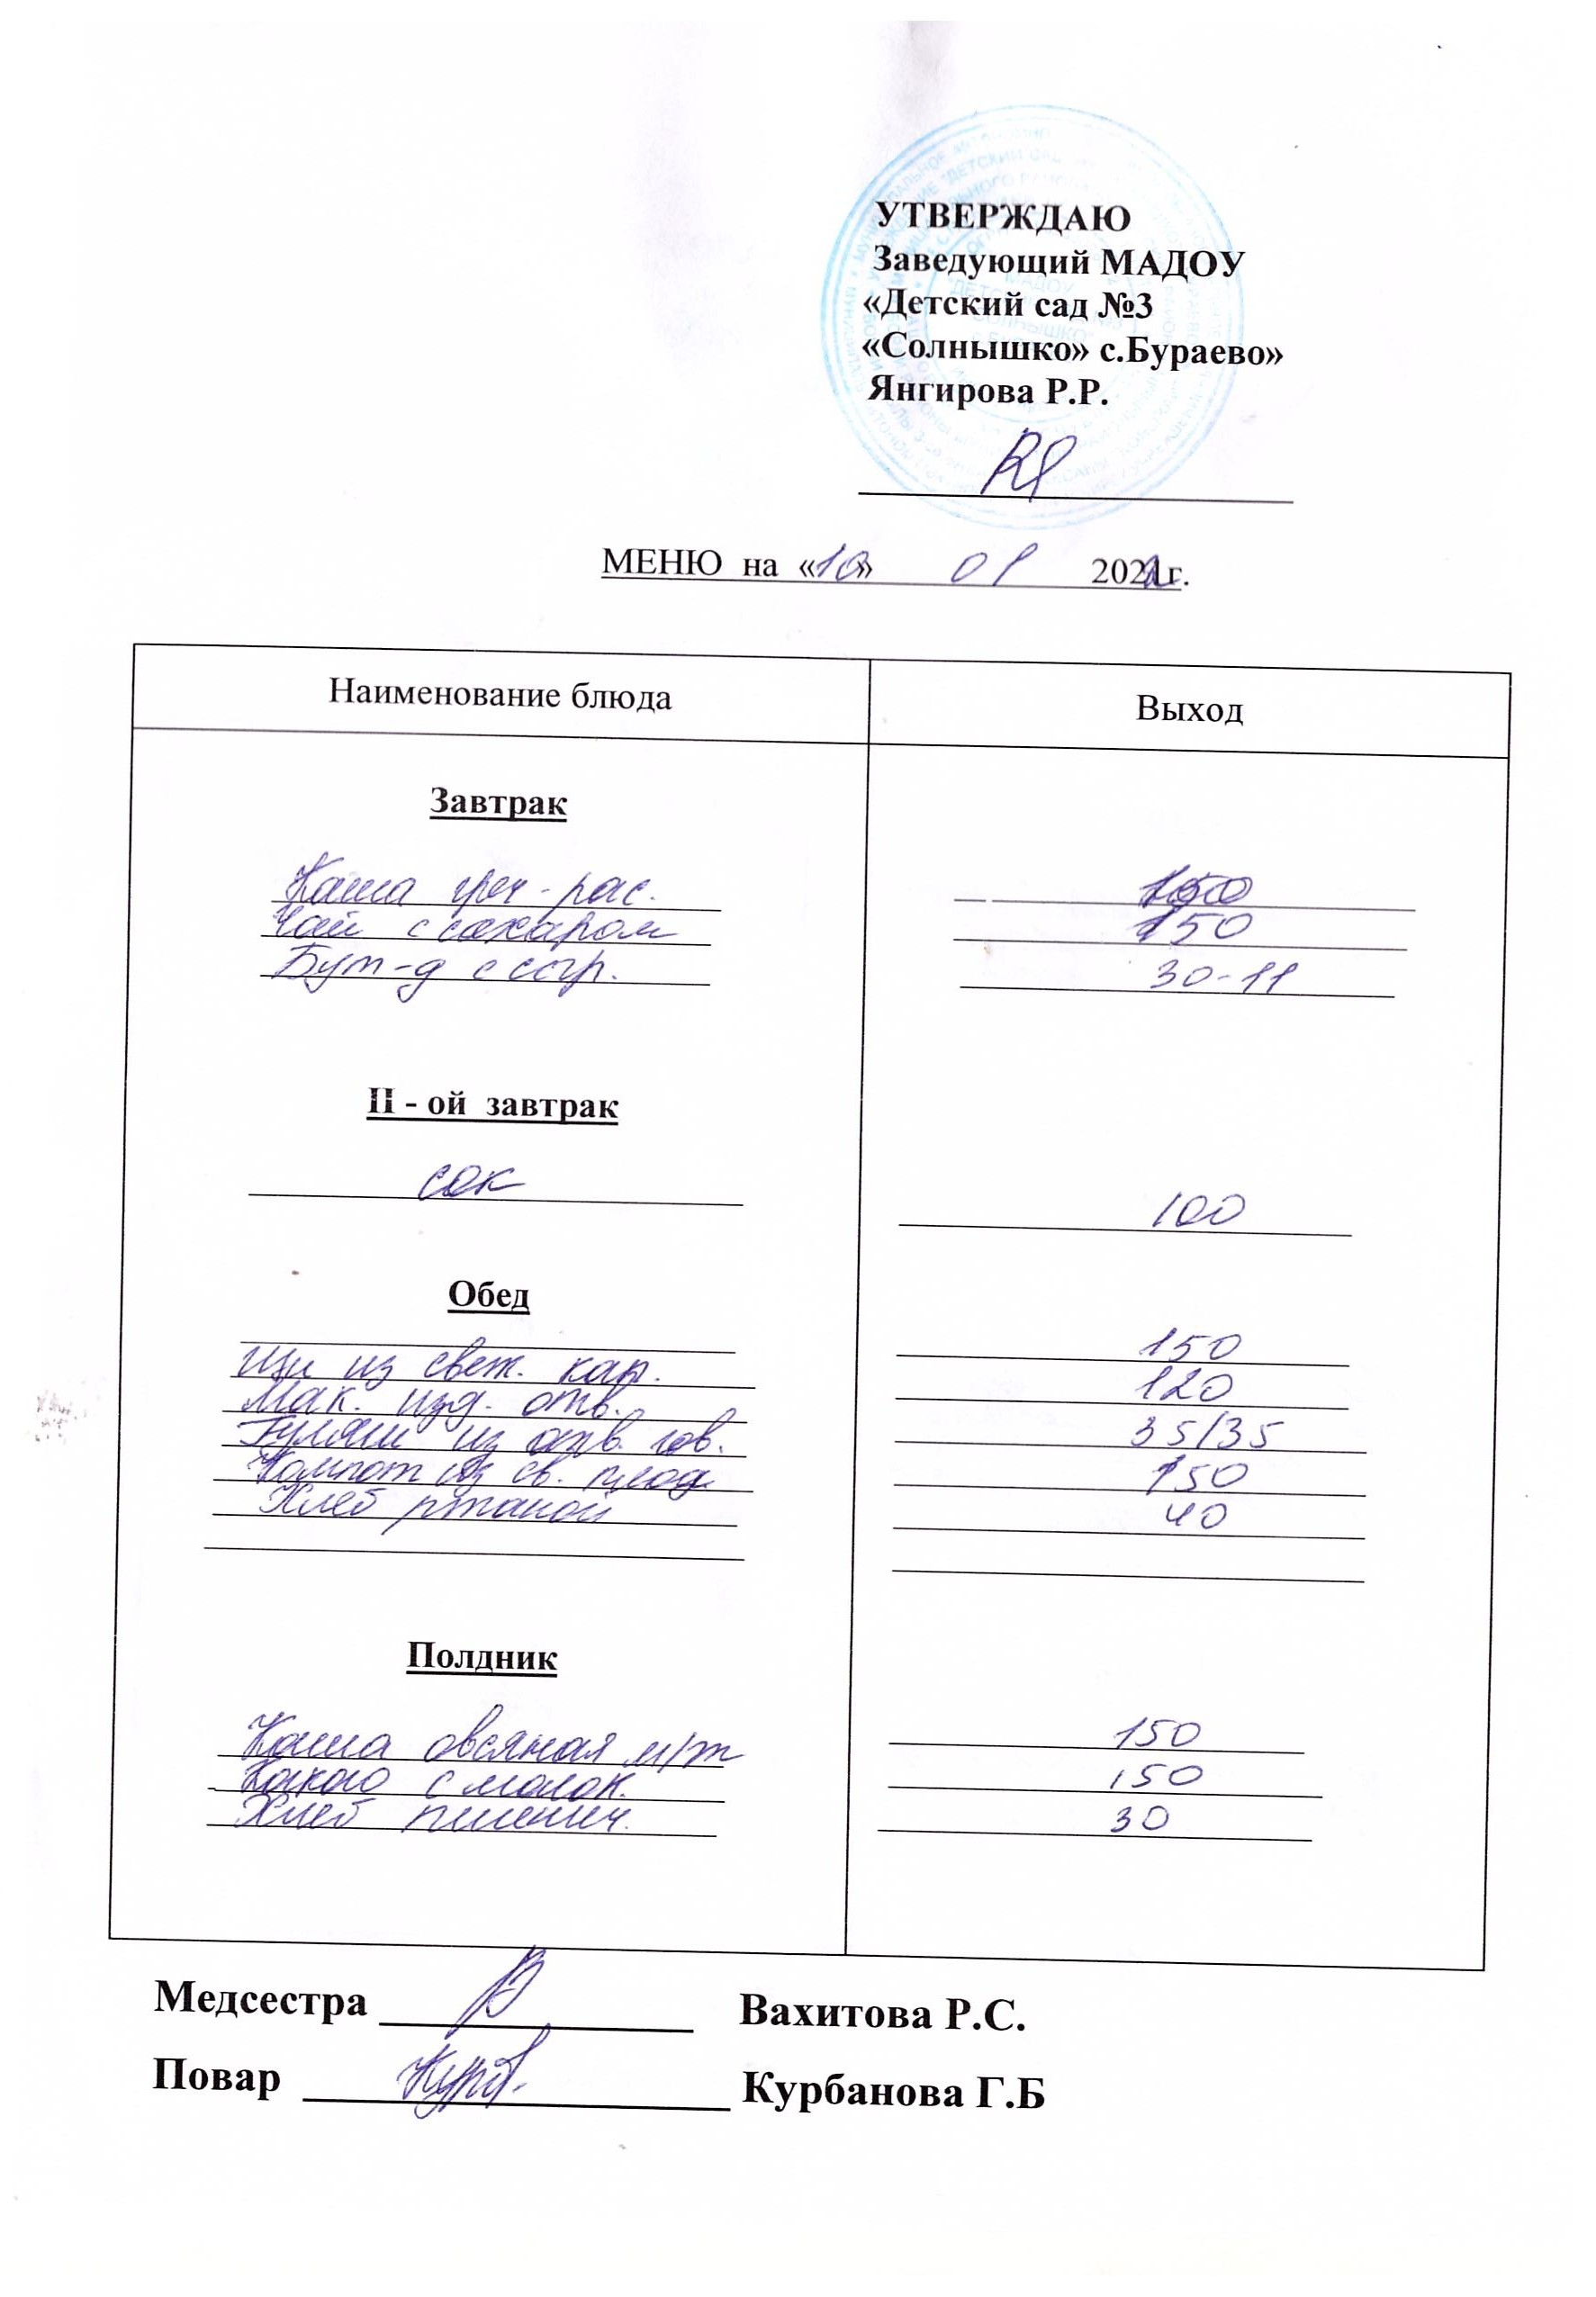 УТВЕРЖДАЮ
Заведующий МАДОУ
«Детский сад №3
«Солнышко» с.Бураево»
Янгирова Р.Р.
МЕНЮ на «10» 01 2022г.
Наименование блюда Выход
Завтрак
Каша греч-рас. 150
Чай с сахаром 150
Бут-д с сыр. 30-11
II - ой завтрак
сок 100
Обед
Щи из свеж. кап. 150
Мак. изд. отв. 120
Гуляш из отв. гов. 35/35
Компот из св. плод. 150
Хлеб ржаной 40
Полдник
Каша овсяная м/ж 150
Какао с молок. 150
Хлеб пшенич. 30
Медсестра Вахитова Р.С.
Повар Курбанова Г.Б